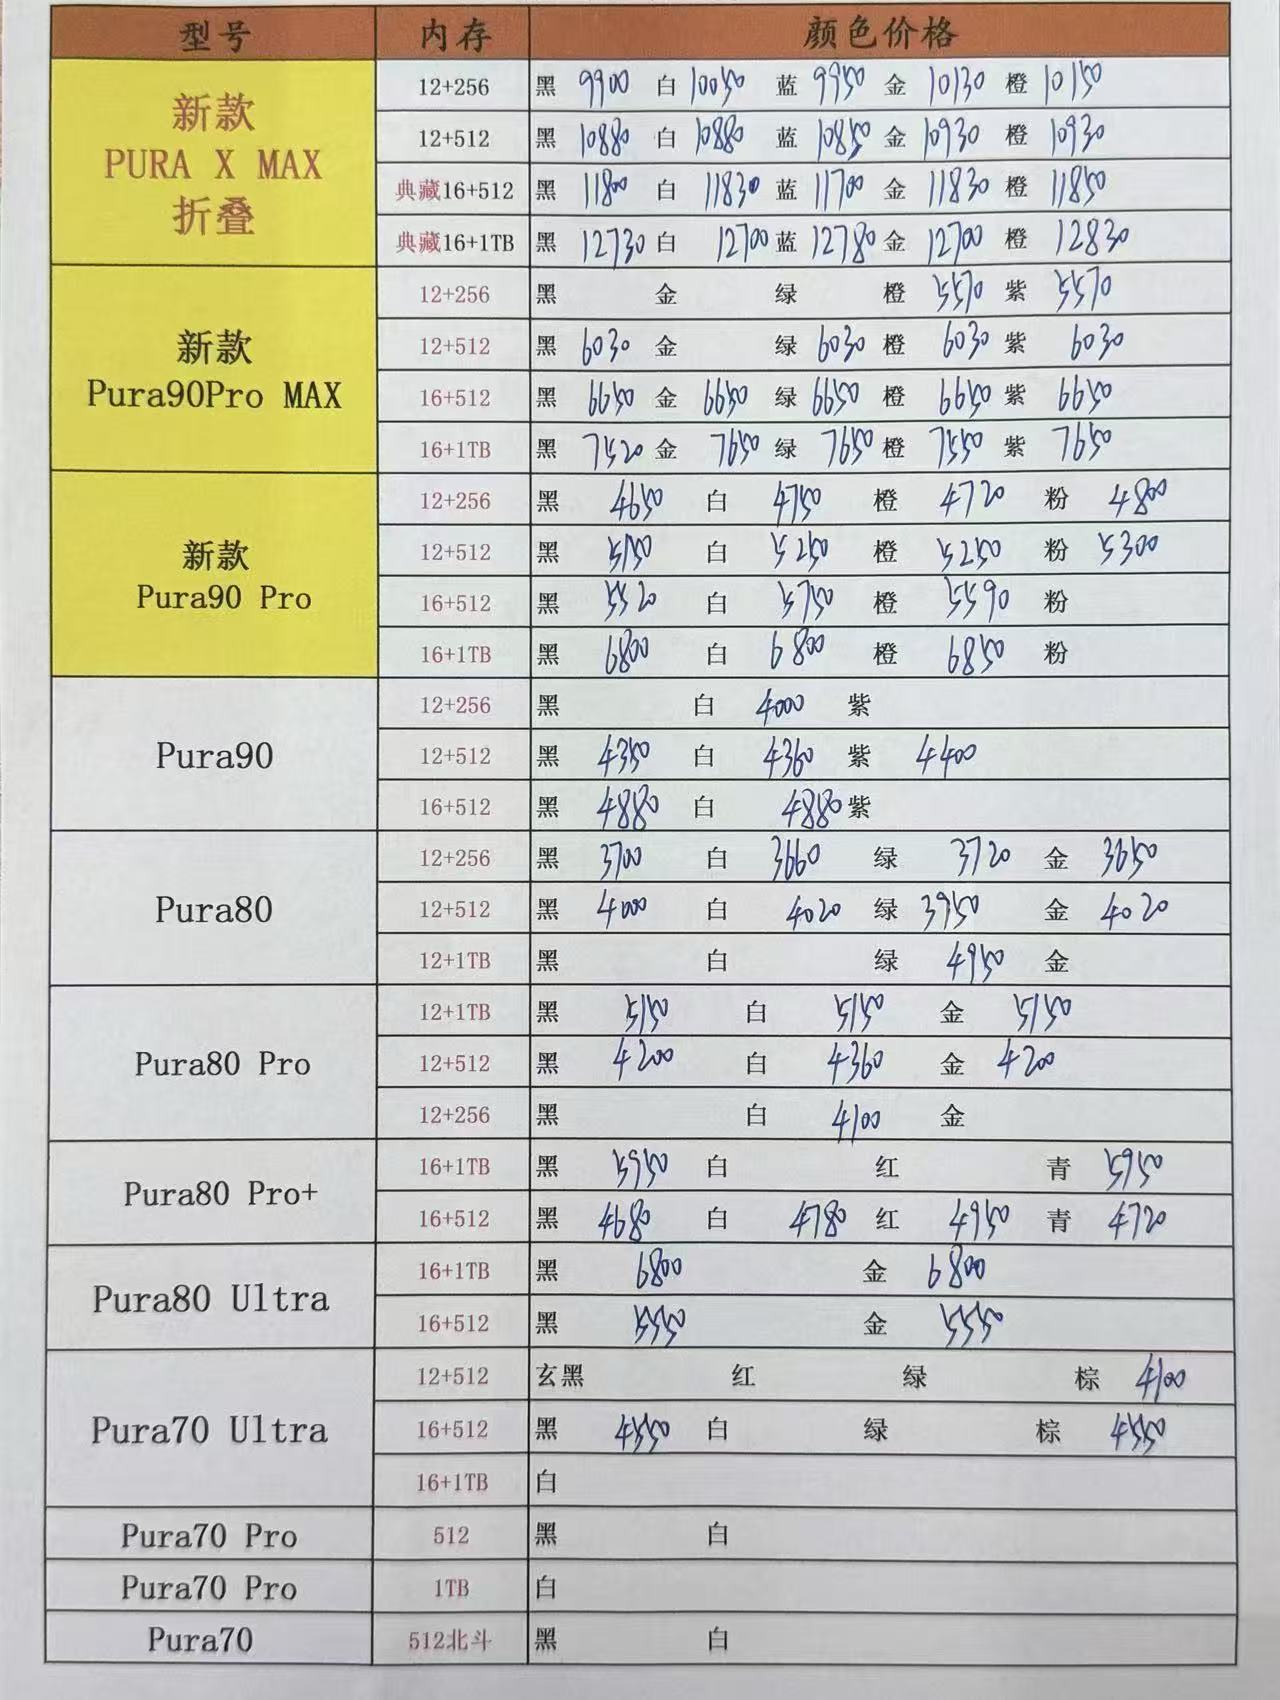 型号 内存 颜色价格
新款
PURA X MAX
折叠
12+256 黑 9900 白 10050 蓝 9950 金 10130 橙 10150
12+512 黑 10880 白 10880 蓝 10850 金 10930 橙 10930
典藏16+512 黑 11800 白 11830 蓝 11700 金 11830 橙 11850
典藏16+1TB 黑 12730 白 12700 蓝 12780 金 12700 橙 12830
新款
Pura90Pro MAX
12+256 黑 金 绿 橙 5570 紫 5570
12+512 黑 6030 金 绿 6030 橙 6030 紫 6030
16+512 黑 6650 金 6650 绿 6650 橙 6650 紫 6650
16+1TB 黑 7520 金 7650 绿 7650 橙 7550 紫 7650
新款
Pura90 Pro
12+256 黑 4650 白 4750 橙 4720 粉 4800
12+512 黑 5150 白 5250 橙 5250 粉 5300
16+512 黑 5520 白 5750 橙 5590 粉
16+1TB 黑 6800 白 6800 橙 6850 粉
Pura90
12+256 黑 白 4000 紫
12+512 黑 4350 白 4360 紫 4400
16+512 黑 4880 白 4880 紫
Pura80
12+256 黑 3700 白 3660 绿 3720 金 3650
12+512 黑 4000 白 4020 绿 3950 金 4020
12+1TB 黑 白 绿 4950 金
Pura80 Pro
12+1TB 黑 5150 白 5150 金 5150
12+512 黑 4200 白 4360 金 4200
12+256 黑 白 4100 金
Pura80 Pro+
16+1TB 黑 5950 白 红 青 5950
16+512 黑 4680 白 4780 红 4950 青 4720
Pura80 Ultra
16+1TB 黑 6800 金 6800
16+512 黑 5550 金 5550
Pura70 Ultra
12+512 玄黑 红 绿 棕 4100
16+512 黑 4550 白 绿 棕 4550
16+1TB 白
Pura70 Pro 512 黑 白
Pura70 Pro 1TB 白
Pura70 512北斗 黑 白